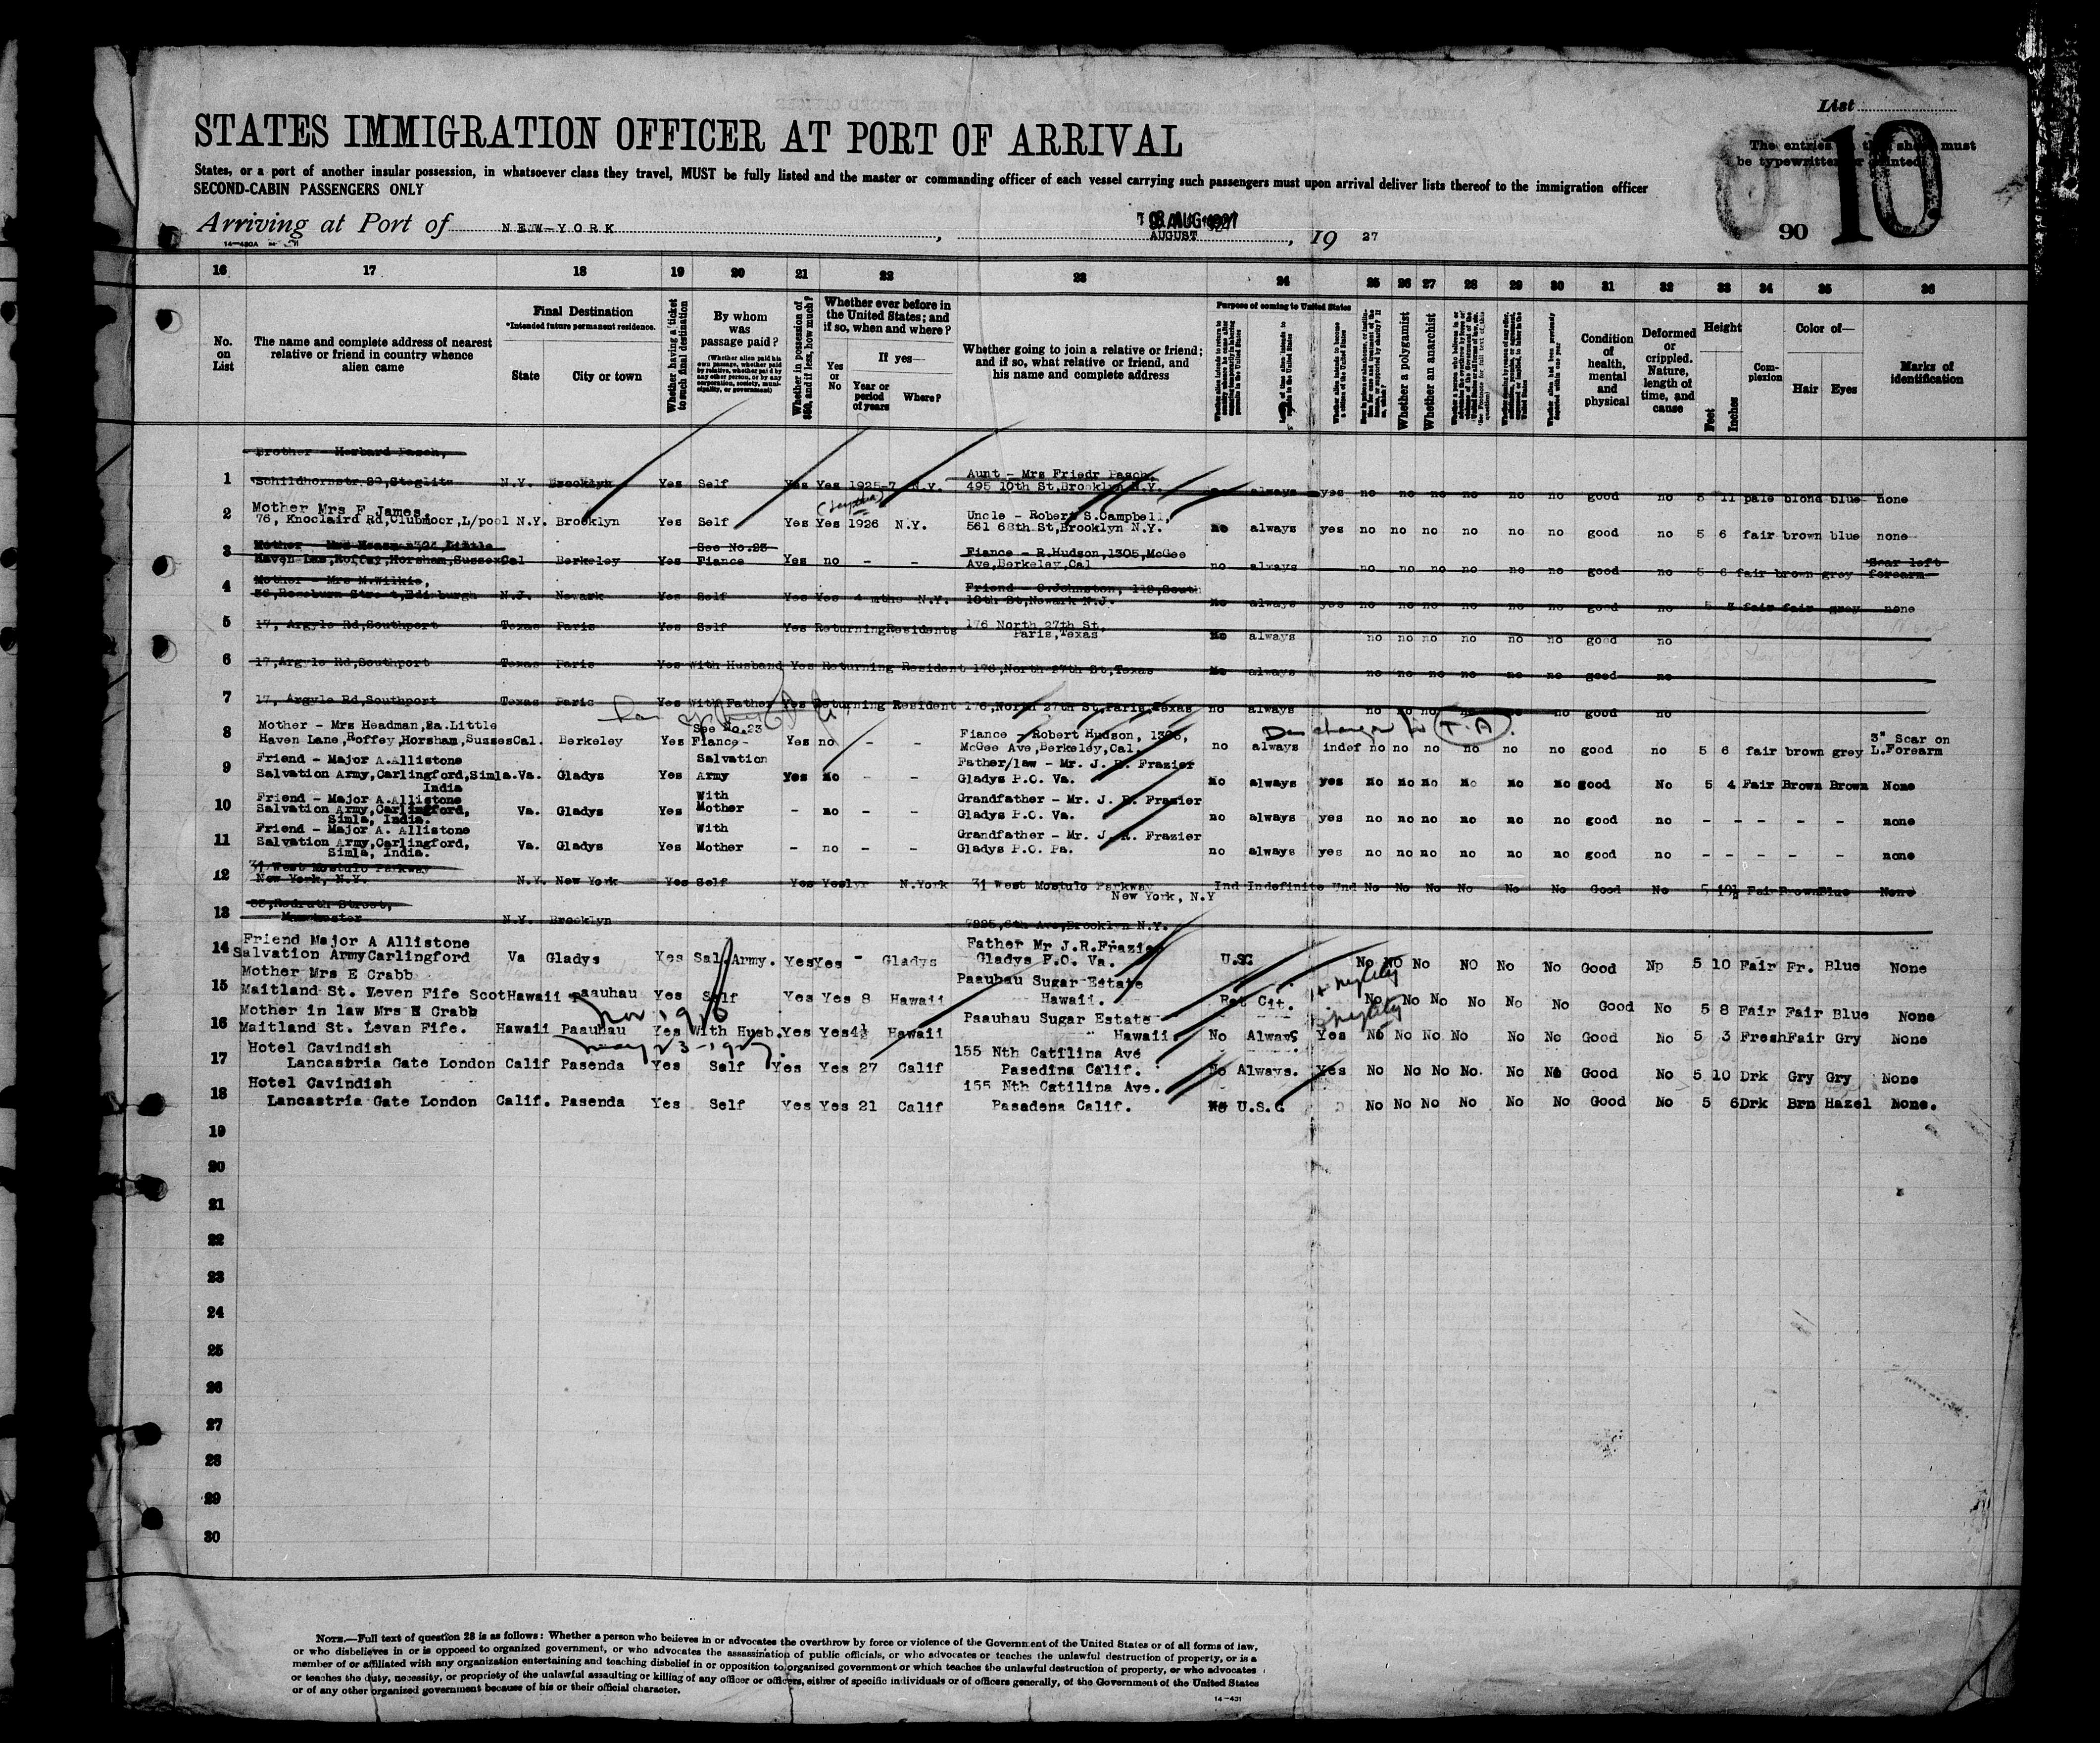 List
10
The entries on this sheet must
be typewritten or printed.
STATES IMMIGRATION OFFICER AT PORT OF ARRIVAL
States, or a port of another insular possession, in whatsoever class they travel, MUST be fully listed and the master or commanding officer of each vessel carrying such passengers must upon arrival deliver lists thereof to the immigration officer
SECOND-CABIN PASSENGERS ONLY
Arriving at Port of NEW-YORK, AUGUST, 19 27
90
16 17 18 19 20 21 22 23 24 25 26 27 28 29 30 31 32 33 34 35 36
No. on List
The name and complete address of nearest relative or friend in country whence alien came
Final Destination
*Intended future permanent residence.
State
City or town
Whether having a ticket to such final destination
By whom was passage paid?
(Whether alien paid his own passage, whether paid by relative, whether paid by any other person, or by any corporation, society, municipality, or government)
Whether in possession of $50, and if less, how much?
Whether ever before in the United States; and if so, when and where?
Yes or No
If yes—
Year or period of years
Where?
Whether going to join a relative or friend; and if so, what relative or friend, and his name and complete address
Purpose of coming to United States
Whether a polygamist
Whether an anarchist
Condition of health, mental and physical
Deformed or crippled. Nature, length of time, and cause
Height
Feet
Inches
Complexion
Color of—
Hair
Eyes
Marks of identification
Brother - Herbard Pasch, Aunt - Mrs Friedr Pasch,
1 Schildhornstr 89, Steglitz N.Y. Brooklyn Yes Self Yes Yes 1925-7 N.Y. 495 10th St,Brooklyn N.Y. always yes no no no no no no good no 5 11 pale blond blue none
Mother Mrs F James, Uncle - Robert S.Campbell,
2 76, Knoclaird Rd,Clubmoor,L/pool N.Y. Brooklyn Yes Self Yes Yes 1926 N.Y. 561 68th St,Brooklyn N.Y. no always yes no no no no no no good no 5 6 fair brown blue none
Little See No.23 Fiance - R.Hudson,1305,McGee Scar left
3 Haven Lan,Roffey,Horsham,Sussex Cal Berkeley Yes Fiance Yes no - - Ave,Berkeley,Cal no always no no no no no no good no 5 6 fair brown grey forearm
Mother - Mrs M.Wilkie, Friend - S.Johnston, 118,South
4 36,Roseburn Street,Edinburgh N.J. Newark Yes Self Yes Yes 4 mths N.Y. 10th St,Newark N.J. No always yes no no no no no no good no fair fair grey none
5 17, Argyle Rd,Southport Texas Paris Yes Self Yes ReturningResidents 176 North 27th St, Paris,Texas No always no no no no no no good no
6 17,Argyle Rd,Southport Texas Paris Yes With Husband Yes Returning Resident 176,North 27th St,Texas No always no no no no no no good no
7 17, Argyle Rd,Southport Texas Paris Yes With Father Yes Returning Resident 176,North 27th St,Paris,Texas no always no no no no no no good no
Discharged to T.A.
Mother - Mrs Headman,2a.Little See No.23 Fiance - Robert Hudson, 1305, 3" Scar on
8 Haven Lane,Roffey,Horsham,Susses Cal. Berkeley Yes Fiance- Yes no - - McGee Ave,Berkeley,Cal. no always indef no no no no no no good no 5 6 fair brown grey L.Forearm
Friend - Major A.Allistone Salvation Father/law - Mr. J. R. Frazier
9 Salvation Army,Carlingford,Simla. India Va. Gladys Yes Army Yes No - - Gladys P.O. Va. No always yes no no no no no no good No 5 4 Fair Brown Brown None
Friend - Major A.Allistone With Grandfather - Mr. J. R. Frazier
10 Salvation Army,Carlingford, Simla, India. Va. Gladys Yes Mother - no - - Gladys P.O. Va. no always yes no no no no no no good no - - - - - none
Friend - Major A. Allistone With Grandfather - Mr. J. R. Frazier
11 Salvation Army,Carlingford, Simla, India. Va. Gladys Yes Mother - no - - Gladys P.O. Pa. no always yes no no no no no no good no - - - - - none
31 West Mostulo Parkway
12 New York, N.Y. N.Y. New York Yes Self Yes Yes1yr N.York 31 West Mostulo Parkway New York, N.Y Ind Indefinite Und No No No No No No Good No 5 10½ Fair Brown Blue None
85,Redruth Street,
13 Manchester N.Y. Brooklyn 7225,6th Ave,Brooklyn N.Y.
Friend Major A Allistone Father Mr J.R.Frazier
14 Salvation ArmyCarlingford Va Gladys Yes Sal.Army. Yes Yes - Gladys Gladys P.O. Va. U.SC No NO No NO No No Good Np 5 10 Fair Fr. Blue None
Mother Mrs E Crabb Paauhau Sugar Estate
15 Maitland St. Leven Fife Scot Hawaii Paauhau Yes Self Yes Yes 8 Hawaii Hawaii. Ret Cit. No No No No No No Good No 5 8 Fair Fair Blue None
Nov 1916
Mother in law Mrs E Crabb Paauhau Sugar Estate
16 Maitland St. Levan Fife. Hawaii Paauhau Yes With Husb. Yes Yes4½ Hawaii Hawaii No Always Yes No No No No No No Good No 5 3 Fresh Fair Gry None
May 23-1927.
Hotel Cavindish 155 Nth Catilina Ave
17 Lancastria Gate London Calif Pasenda Yes Self Yes Yes 27 Calif Pasedina Calif. No Always. Yes No No No No. No No Good No 5 10 Drk Gry Gry None
Hotel Cavindish 155 Nth Catilina Ave.
18 Lancastria Gate London Calif. Pasenda Yes Self Yes Yes 21 Calif Pasadena Calif. No U.S.C No No No No No No Good No 5 6 Drk Brn Hazel None.
19
20
21
22
23
24
25
26
27
28
29
30
NOTE.—Full text of question 28 is as follows: Whether a person who believes in or advocates the overthrow by force or violence of the Government of the United States or of all forms of law,
or who disbelieves in or is opposed to organized government, or who advocates the assassination of public officials, or who advocates or teaches the unlawful destruction of property, or is a
member of or affiliated with any organization entertaining and teaching disbelief in or opposition to organized government or which teaches the unlawful destruction of property, or who advocates
or teaches the duty, necessity, or propriety of the unlawful assaulting or killing of any officer or officers, either of specific individuals or of officers generally, of the Government of the United States
or of any other organized government because of his or their official character.
14-431